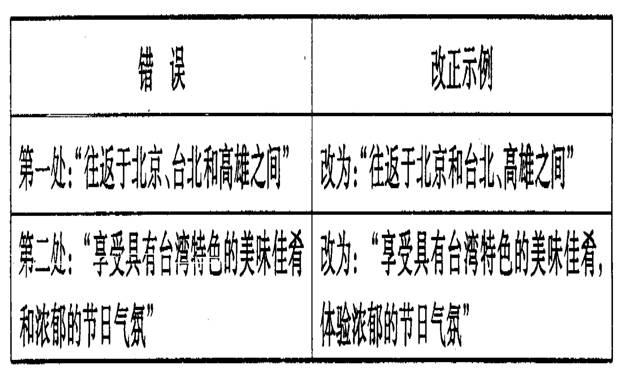 错 误
改正示例
第一处:“往返于北京、台北和高雄之间”
改为:“往返于北京和台北、高雄之间”
第二处:“享受具有台湾特色的美味佳肴
和浓郁的节日气氛”
改为:“享受具有台湾特色的美味佳肴,
体验浓郁的节日气氛”